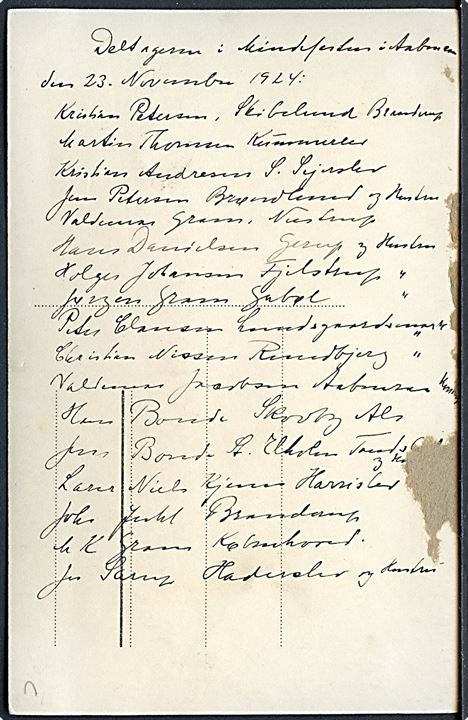 Deltagerne i Mindefesten i Aabenraa
den 23. November 1924:
Kristian Petersen, Skibelund Branderup
Martin Thomsen
Kristian Andresen S. Sejerslev
Jens Petersen Brændlund og Hustru
Valdemar Gram, Nustrup
Hans Danielsen Gerup og Hustru
Holger Johansen Fjelstrup "
Jørgen Gram Gabøl "
Peter Clausen "
Christian Nissen Rundbjerg "
Valdemar Jacobsen Aabenraa
Hans Bonde Skovby Als
Jens Bonde
Niels Kjems Harrislev
Johs Juhl Branderup
M K Gram Københoved.
Jes Sarup Haderslev og Hustru